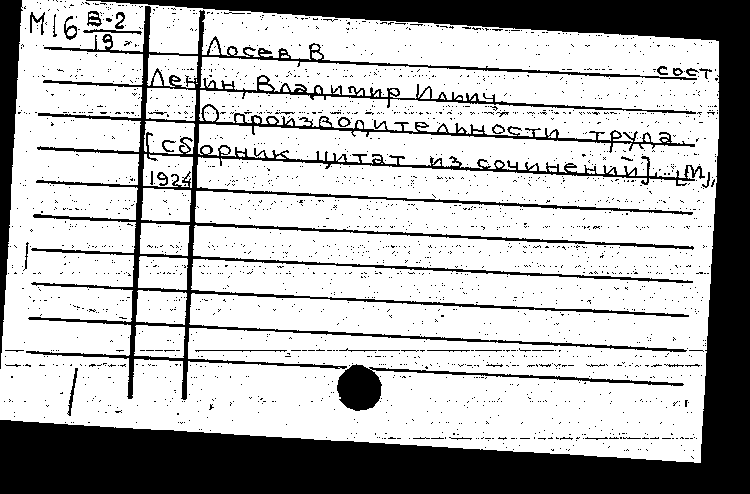 М16 В-2
19
Лосев, В сост.
Ленин, Владимир Ильич
О производительности труда.
[сборник цитат из сочинений]. [М],
1924